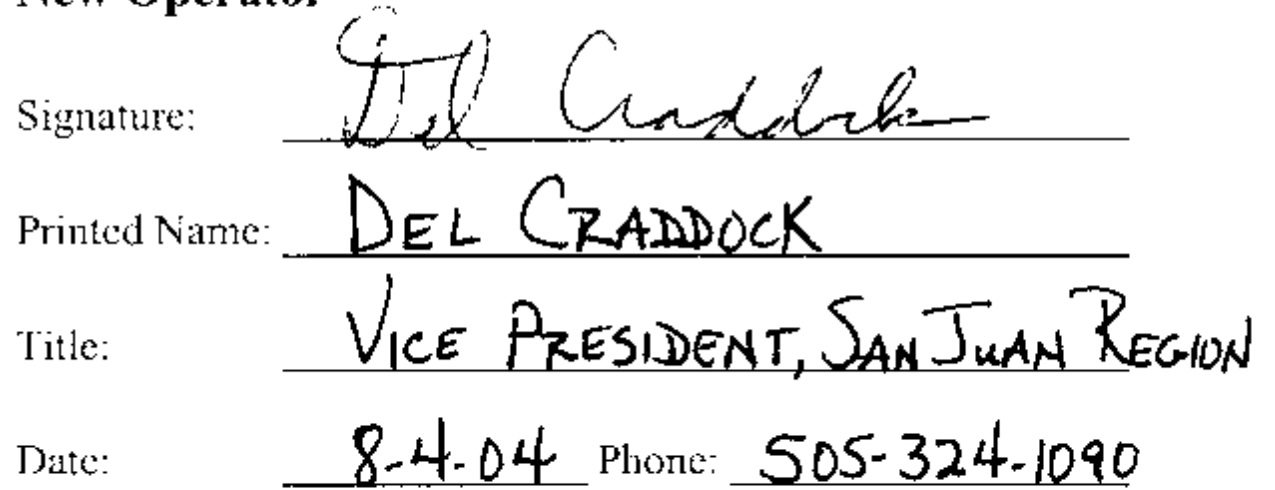 New Operator
Signature: Del Craddock
Printed Name: DEL CRADDOCK
Title: VICE PRESIDENT, SAN JUAN REGION
Date: 8-4-04 Phone: 505-324-1090